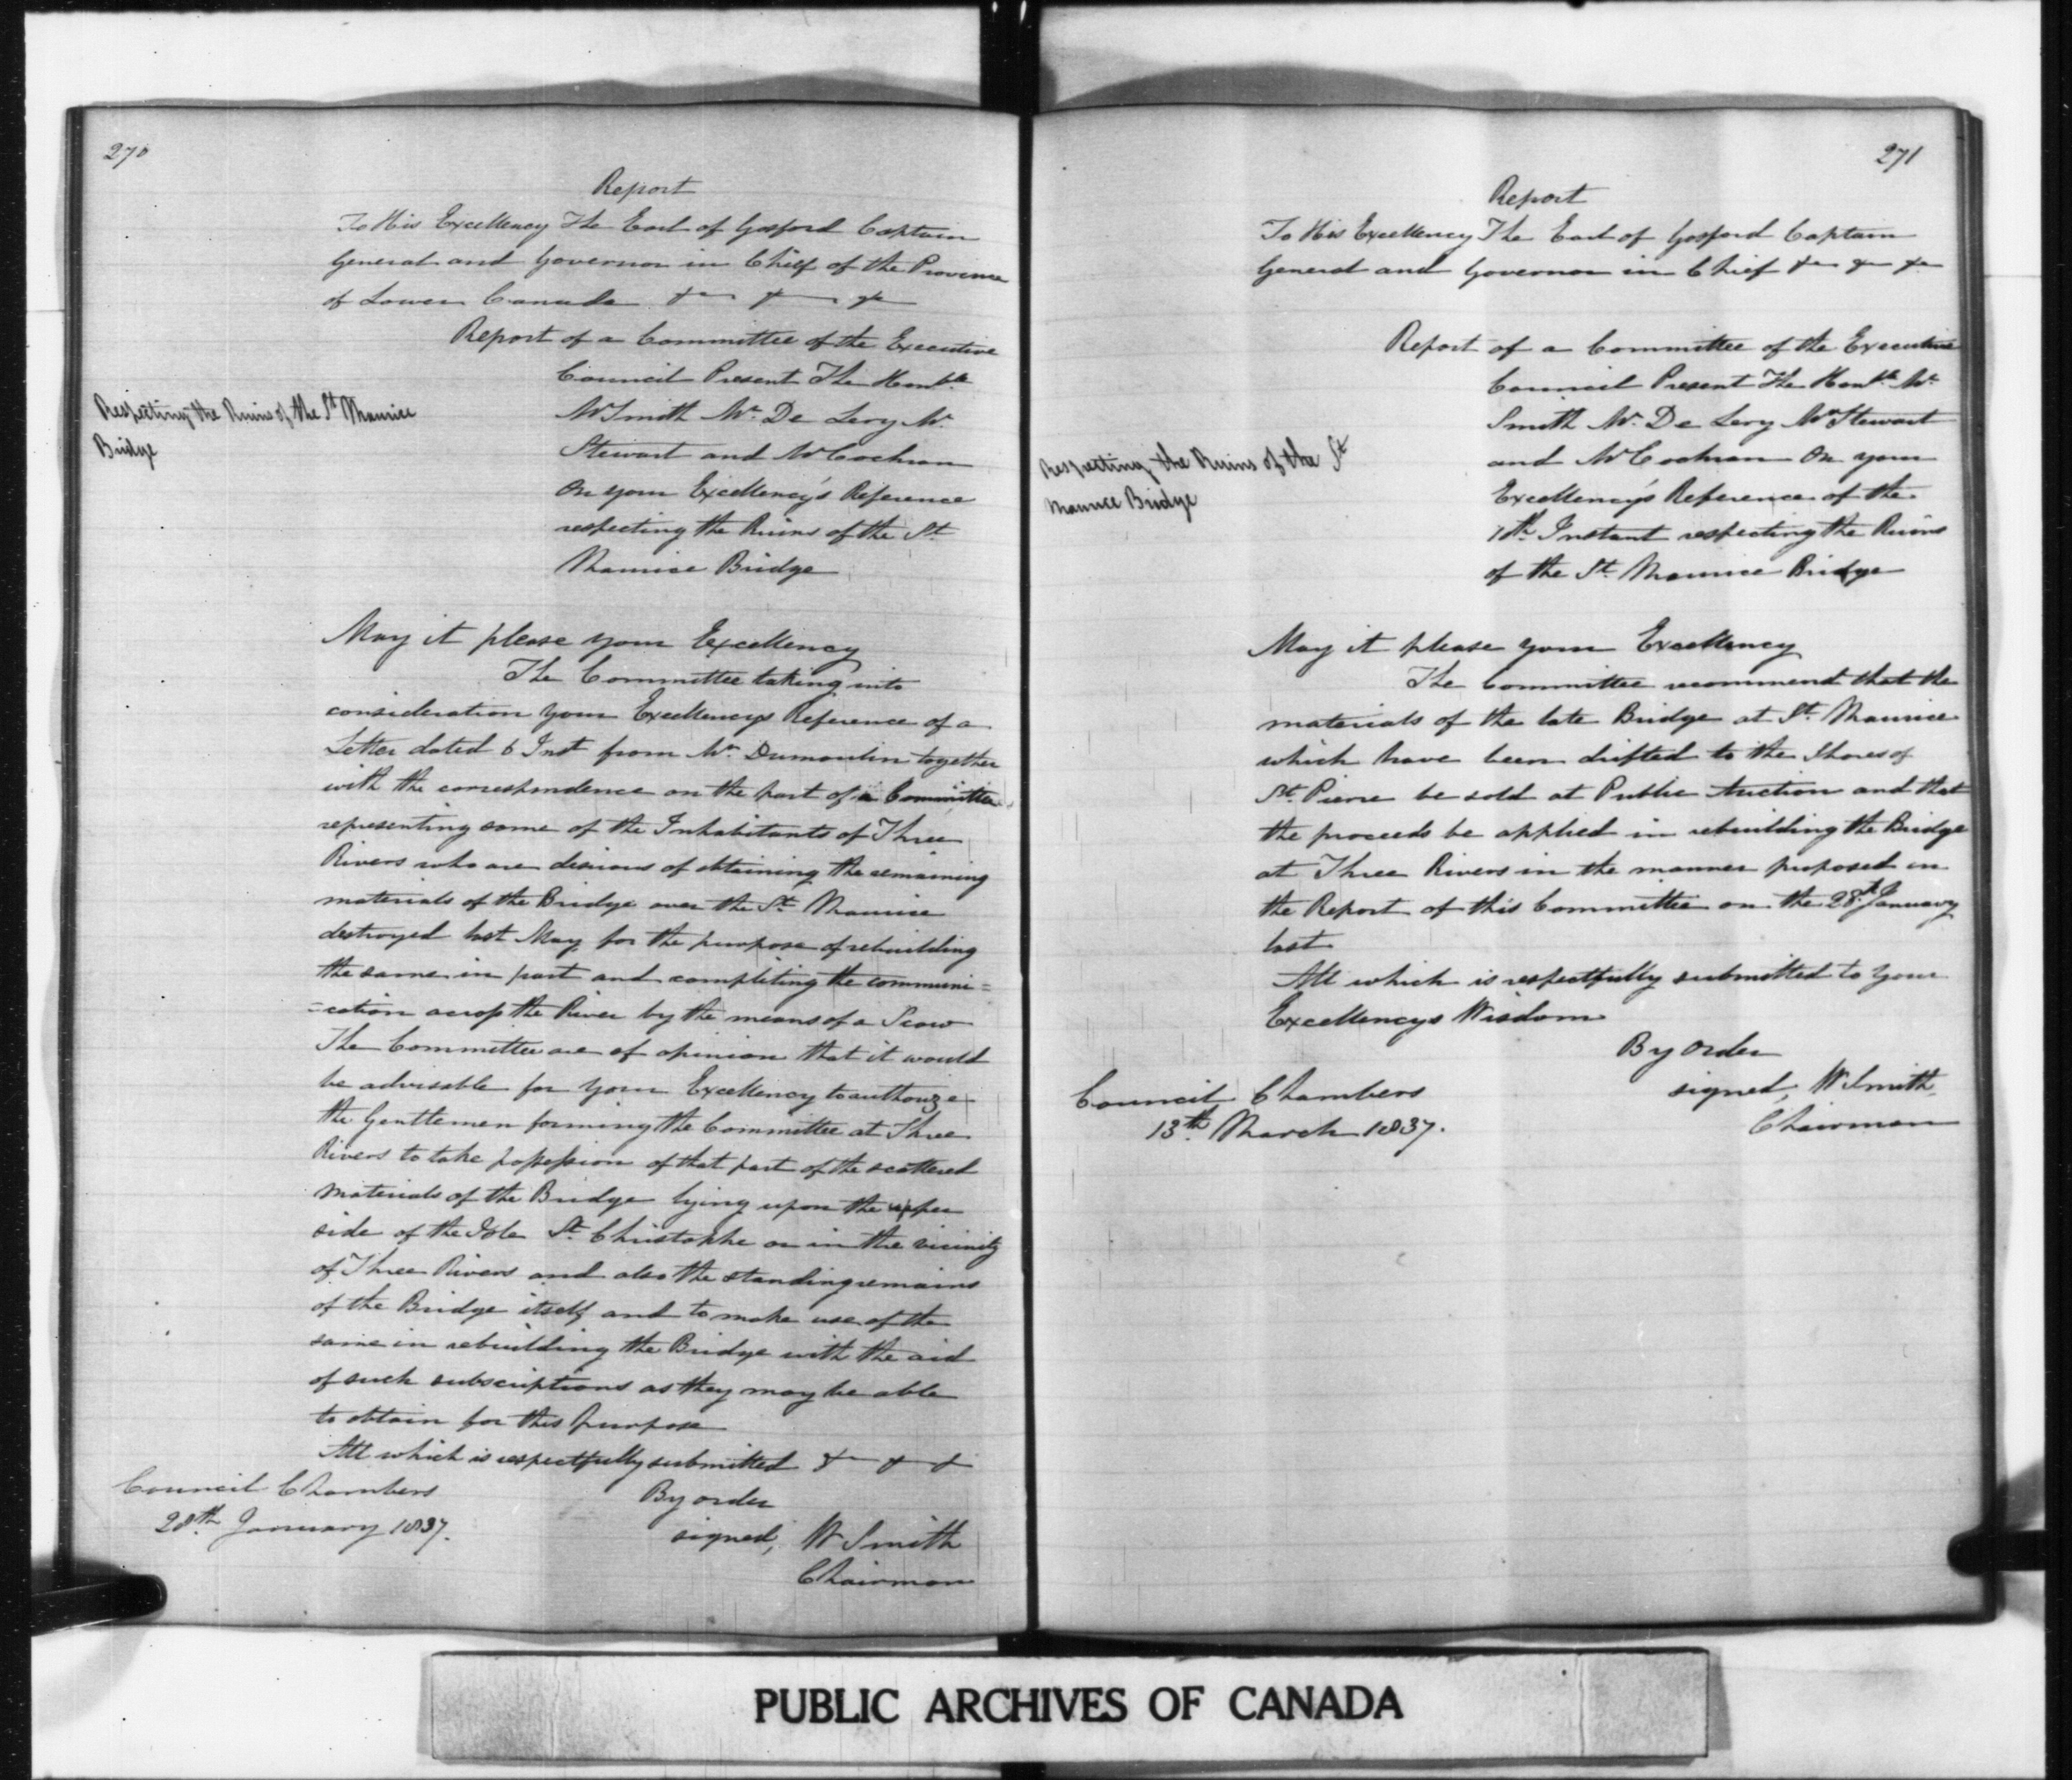 270
Report
To His Excellency The Earl of Gosford Captain
General and Governor in Chief of the Province
of Lower Canada &c &c &c
Report of a Committee of the Executive
Council Present The Honble
Mr Smith Mr. De Lery Mr.
Stewart and Mr Cochran
On your Excellency's Reference
respecting the Ruins of the St.
Maurice Bridge
Respecting the Ruins of the St Maurice
Bridge
May it please your Excellency
The Committee taking into
consideration your Excellencys Reference of a
Letter dated 6 Inst from Mr. Dumoulin together
with the correspondence on the part of a Committee
representing some of the Inhabitants of Three
Rivers who are desirous of obtaining the remaining
materials of the Bridge over the St. Maurice
destroyed last May for the purpose of rebuilding
the same in part and completing the communi=
=cation across the River by the means of a Scow
The Committee are of opinion that it would
be advisable for your Excellency to authorize
the Gentlemen forming the Committee at Three
Rivers to take possession of that part of the scattered
materials of the Bridge lying upon the upper
side of the Isle St. Christophe or in the vicinity
of Three Rivers and also the standing remains
of the Bridge itself and to make use of the
same in rebuilding the Bridge with the aid
of such subscriptions as they may be able
to obtain for this purpose
All which is respectfully submitted &c &c &c
Council Chambers
28th January 1837.
By order
signed, W Smith
Chairman
271
Report
To His Excellency The Earl of Gosford Captain
General and Governor in Chief &c &c &c
Report of a Committee of the Executive
Council Present The Honble Mr.
Smith Mr. De Lery Mr Stewart
and Mr Cochran On your
Excellency's Reference of the
7th Instant respecting the Ruins
of the St. Maurice Bridge
Respecting the Ruins of the St
Maurice Bridge
May it please your Excellency
The Committee recommend that the
materials of the late Bridge at St. Maurice
which have been drifted to the Shores of
St. Pierre be sold at Public Auction and that
the proceeds be applied in rebuilding the Bridge
at Three Rivers in the manner proposed in
the Report of this Committee on the 28th January
last
All which is respectfully submitted to Your
Excellencys Wisdom
By Order
signed, W Smith,
Chairman
Council Chambers
13th March 1837.
PUBLIC ARCHIVES OF CANADA